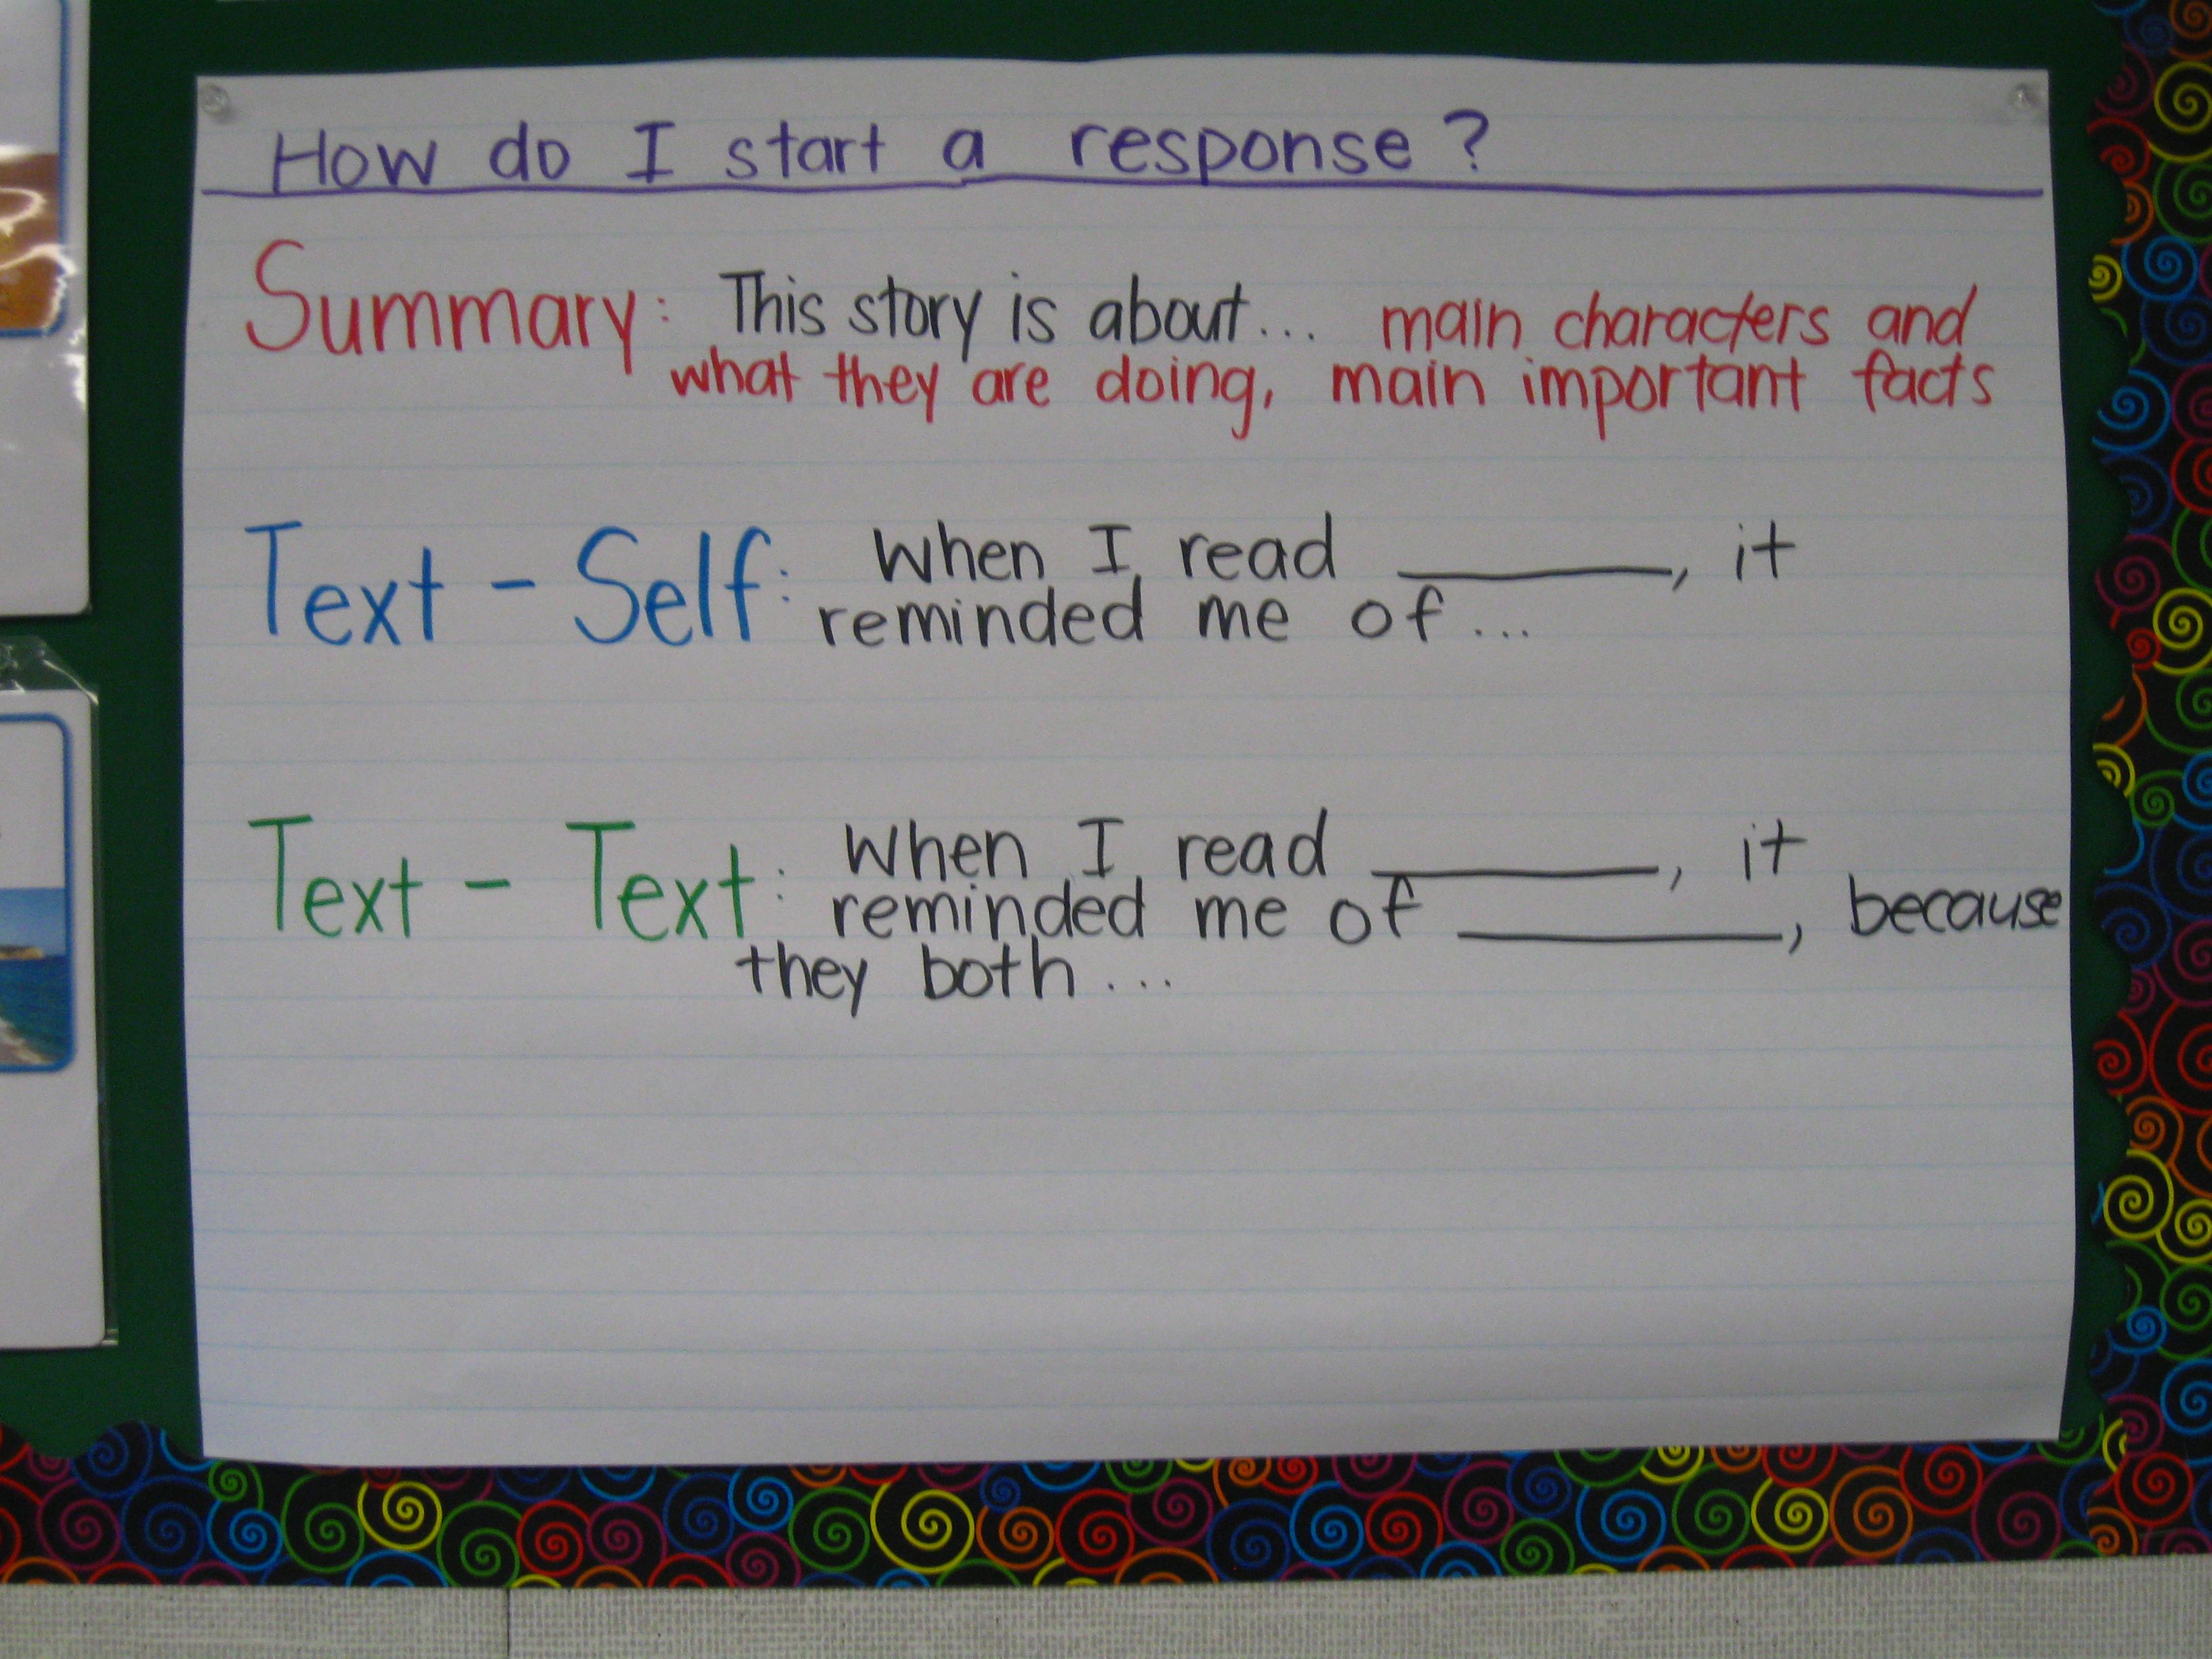 How do I start a response?
Summary: This story is about... main characters and
what they are doing, main important facts
Text - Self: When I read ________, it
reminded me of...
Text - Text: When I read ________, it
reminded me of ________, because
they both...